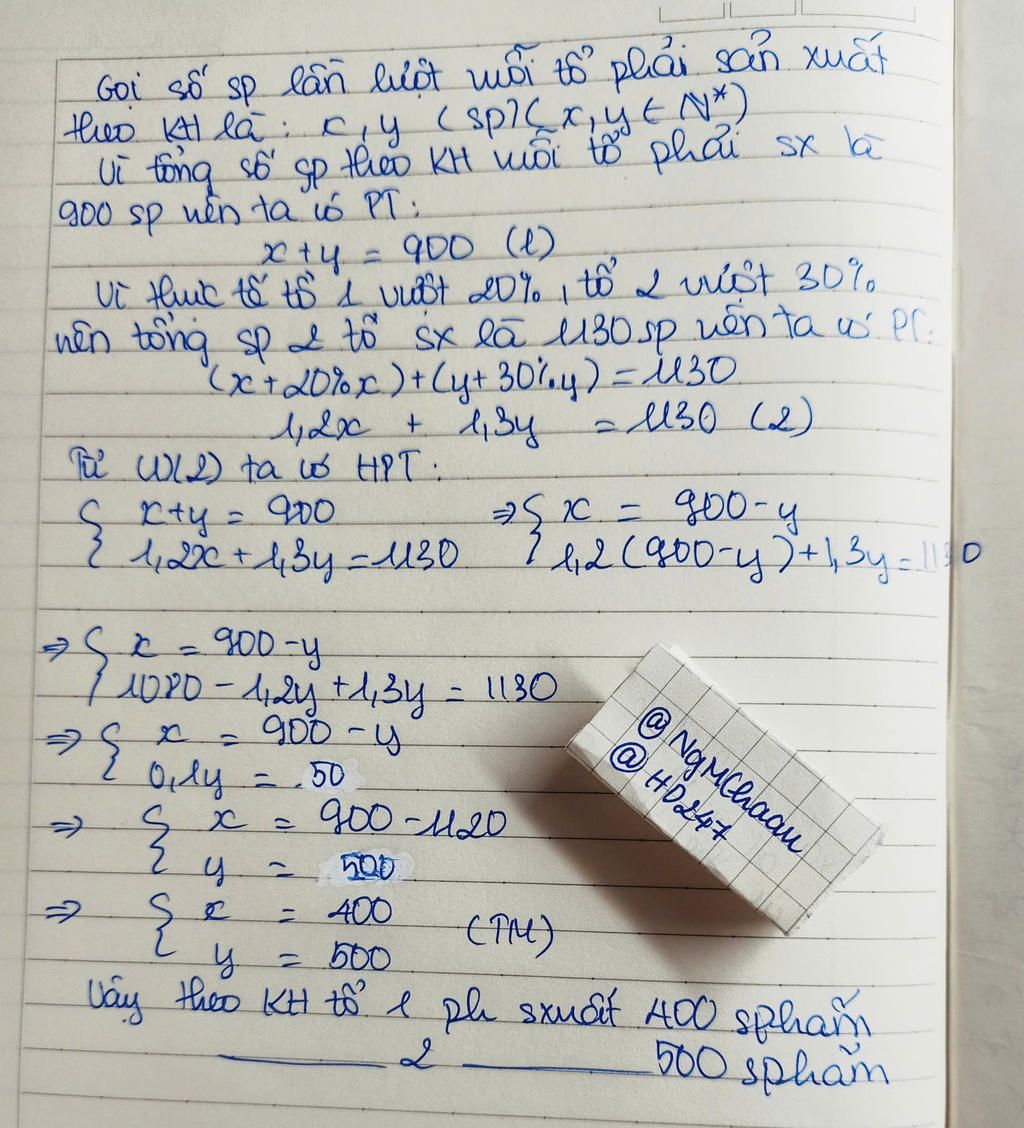 Gọi số sp lần lượt mỗi tổ phải sản xuất
theo KH là: x, y (sp) (x, y ∈ N*)
Vì tổng số sp theo KH mỗi tổ phải sx là
900 sp nên ta có PT:
x + y = 900 (1)
Vì thực tế tổ 1 vượt 20%, tổ 2 vượt 30%
nên tổng sp 2 tổ sx là 1130 sp nên ta có PT:
(x + 20%x) + (y + 30%y) = 1130
1,2x + 1,3y = 1130 (2)
Từ (1)(2) ta có HPT:
{ x + y = 900 ⇒ { x = 900 - y
{ 1,2x + 1,3y = 1130 { 1,2(900 - y) + 1,3y = 1130
⇒ { x = 900 - y
{ 1080 - 1,2y + 1,3y = 1130
⇒ { x = 900 - y
{ 0,1y = 50
⇒ { x = 900 - 1120
{ y = 500
⇒ { x = 400 (TM)
{ y = 500
Vậy theo KH tổ 1 ph sxuất 400 sphẩm
——— 2 ——— 500 sphẩm
@NgMChaau
@HD247